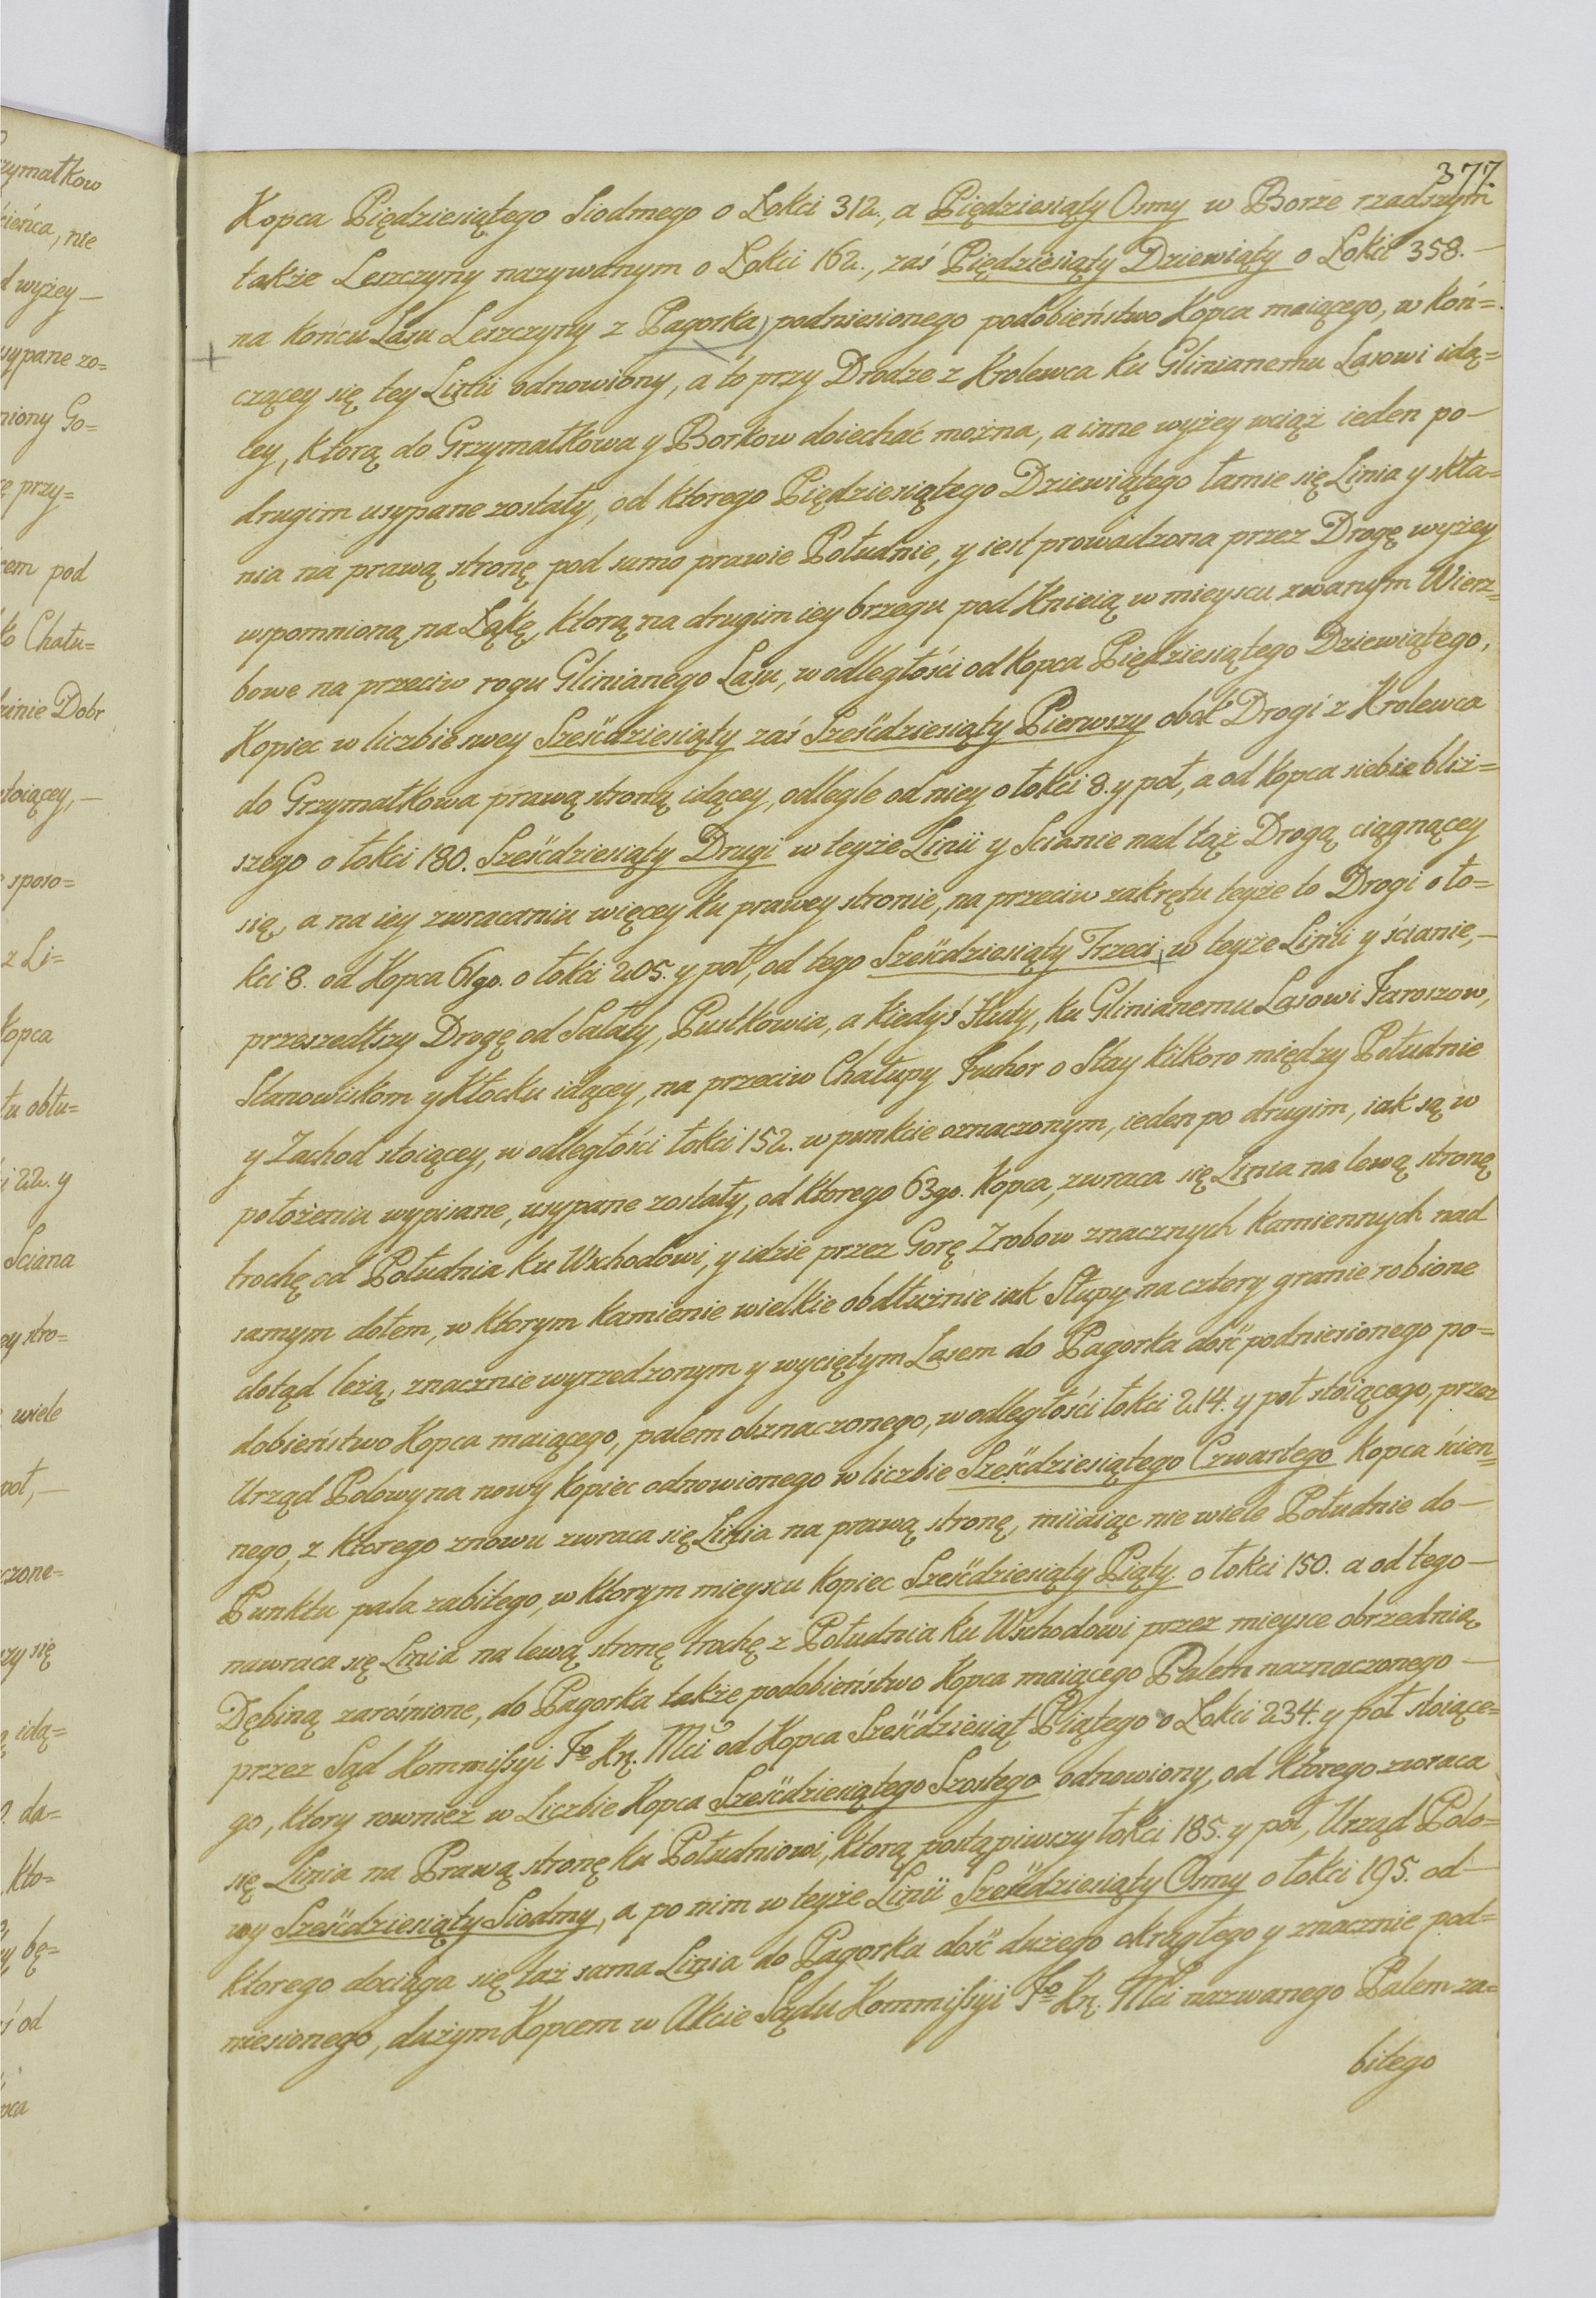 377.
Kopca Piędziesiątego Siodmego o Łokci 312., a Piędziesiąty Osmy w Borze rzadszym
także Leszczyny nazywanym o Łokci 162., zaś Piędziesiąty Dziewiąty o Łokci 358.—
na końcu Lasu Leszczyny z Pagorka podniesionego podobieństwo Kopca maiącego, w koń=
czącey się tey Linii odnowiony, a to przy Drodze z Krolewca ku Glinianemu Lasowi idą=
cey, ktorą do Grzymałkowa y Borkow doiechać można, a inne wyżey wciąż ieden po—
drugim usypane zostały, od ktorego Piędziesiątego Dziewiątego łamie się Linia y skła=
nia na prawą stronę pod samo prawie Południe, y iest prowadzona przez Drogę wyżey
wspomnioną na Łąkę, ktorą na drugim iey brzegu pod Knieią w mieyscu zwanym Wierz=
bowe na przeciw rogu Glinianego Lasu, w odległości od kopca Pięździesiątego Dziewiątego,
Kopiec w liczbie swey Sześćdziesiąty zaś Sześćdziesiąty Pierwszy obok Drogi z Krolewca
do Grzymałkowa prawą stroną idącey, odległe od niey o łokci 8. y poł, a od kopca siebie bliż=
szego o łokci 180. Sześćdziesiąty Drugi w teyże Linii y Scianie nad tąż Drogą ciągnącey
się, a na iey zwracaniu więcey ku prawey stronie, na przeciw zakrętu teyże to Drogi o ło=
kci 8. od Kopca 61go. o łokci 205. y poł, od tego Sześćdziesiąty Trzeci w teyże Linii y ścianie,—
przeszedłszy Drogę od Sałaty, Pustkowia, a kiedyś Hudy, ku Glinianemu Lasowi Jaroszow,
Stanowiskom y Kłocku idącey, na przeciw Chałupy Juchor o Stay kilkoro między Południe
y Zachod stoiącey, w odległości łokci 152. w punkcie oznaczonym, ieden po drugim, iak są w
położeniu wypisane, usypane zostały, od ktorego 63go. Kopca, zwraca się Linia na lewą stronę
trochę od Południa ku Wschodowi, y idzie przez Gorę Zrobow znacznych kamiennych nad
samym dołem, w ktorym kamienie wielkie obdłużnie iak Słupy na cztery granie robione
dotąd leżą, znacznie wyrzedzonym y wyciętym Lasem do Pagorka dość podniesionego po=
dobieństwo Kopca maiącego, palem obznaczonego, w odległości łokci 214. y poł stoiącego, przez
Urząd Polowy na nowy kopiec odnowionego w liczbie Sześćdziesiątego Czwartego kopca ścien=
nego, z ktorego znowu zwraca się Linia na prawą stronę, miiaiąc nie wiele Południe do—
Punktu pala zabitego, w ktorym mieyscu kopiec Sześćdziesiąty Piąty o łokci 150. a od tego—
nawraca się Linia na lewą stronę trochę z Południa ku Wschodowi przez mieysce obrzednią
Dębiną zarośnione, do Pagorka także podobieństwo Kopca maiącego Palem naznaczonego—
przez Sąd Kommissyi Jo Kę. Mci od Kopca Sześćdziesiąt Piątego o Łokci 234. y poł stoiące=
go, ktory rownież w Liczbie Kopca Sześćdziesiątego Szostego odnowiony, od ktorego zwraca
się Linia na Prawą stronę ku Południowi, ktorą postąpiwszy łokci 185. y poł, Urząd Polo=
wy Sześćdziesiąty Siodmy, a po nim w teyże Linii Sześćdziesiąty Osmy o łokci 195. od—
ktorego dociąga się taż sama Linia do Pagorka dość dużego okrągłego y znacznie pod=
niesionego, dużym Kopcem w Akcie Sądu Kommissyi Jo Kę. Mci nazwanego Palem za=
bitego